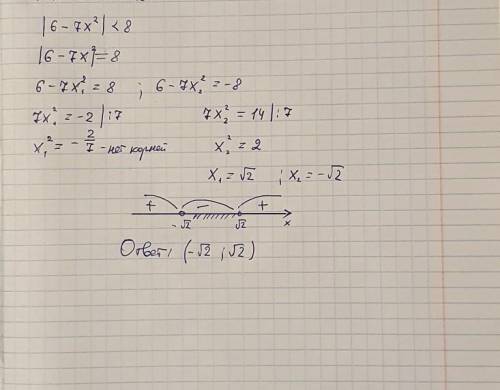 |6 - 7x²| < 8
|6 - 7x²| = 8
6 - 7x₁² = 8 ; 6 - 7x₂² = -8
7x₁² = -2 | :7 7x₂² = 14 | :7
x₁² = -2/7 - нет корней x₂² = 2
x₁ = √2 ; x₂ = -√2
+ - +
-√2 √2 x
Ответ: (-√2 ; √2)